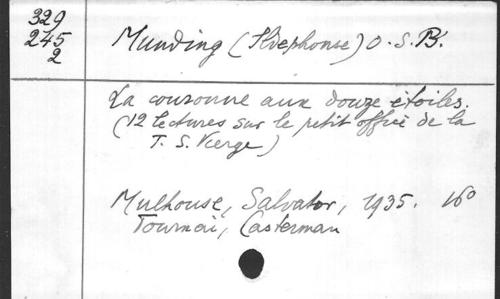 329
245
2
Munding (Ildephonse) O.S.B.
La couronne aux douze étoiles.
(12 lectures sur le petit office de la
T. S. Vierge)
Mulhouse, Salvator, 1935. 16º
Tournai, Casterman